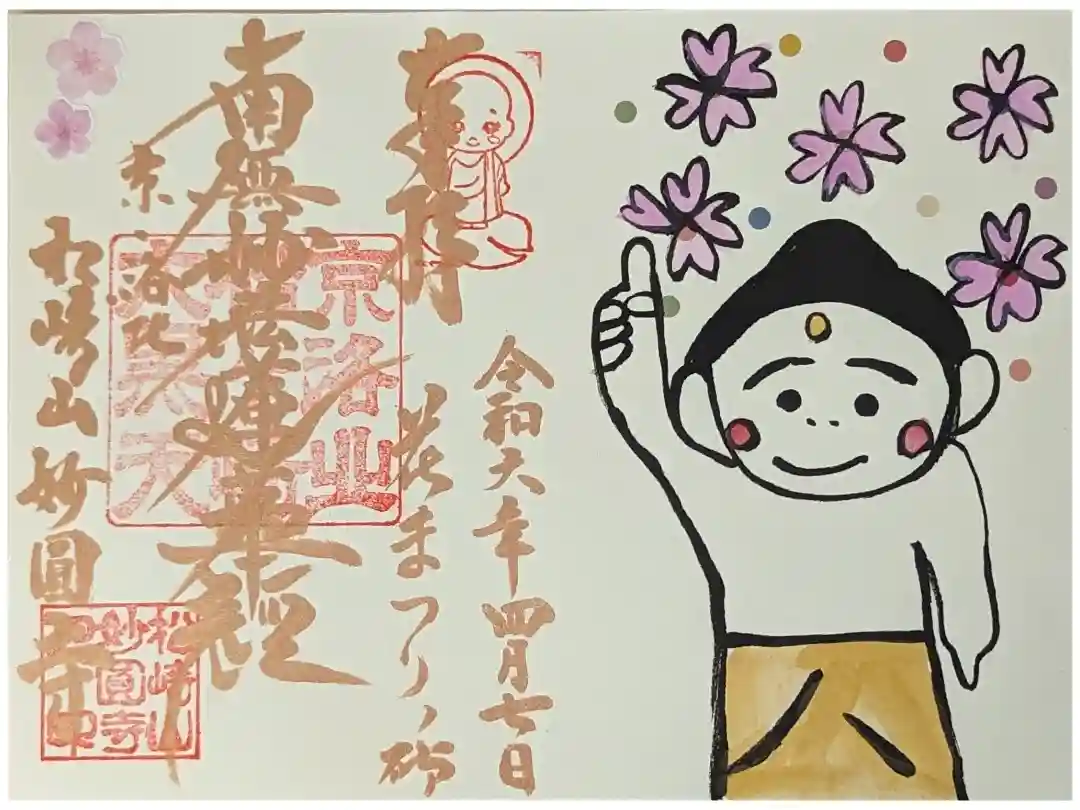 令和六年四月七日
奉拝
花まつりノ砌
南無妙法蓮華経
京洛北
松崎山妙圓寺
大黒天
松崎山
妙圓寺
之印